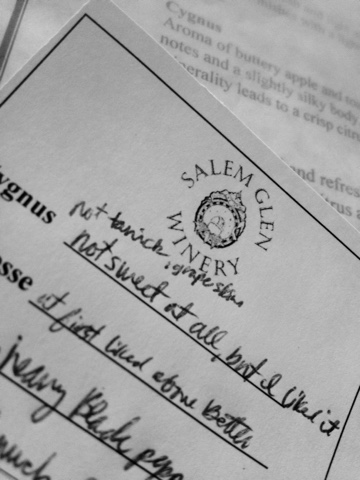 Cygnus
Aroma of buttery apple and
notes and a slightly silky body
minerality leads to a crisp citrus
and refres
SALEM GLEN
WINERY
ygnus
not tannick, grape skin
not sweet at all, but I like it
osse
at first liked above better
heavy Black pepp